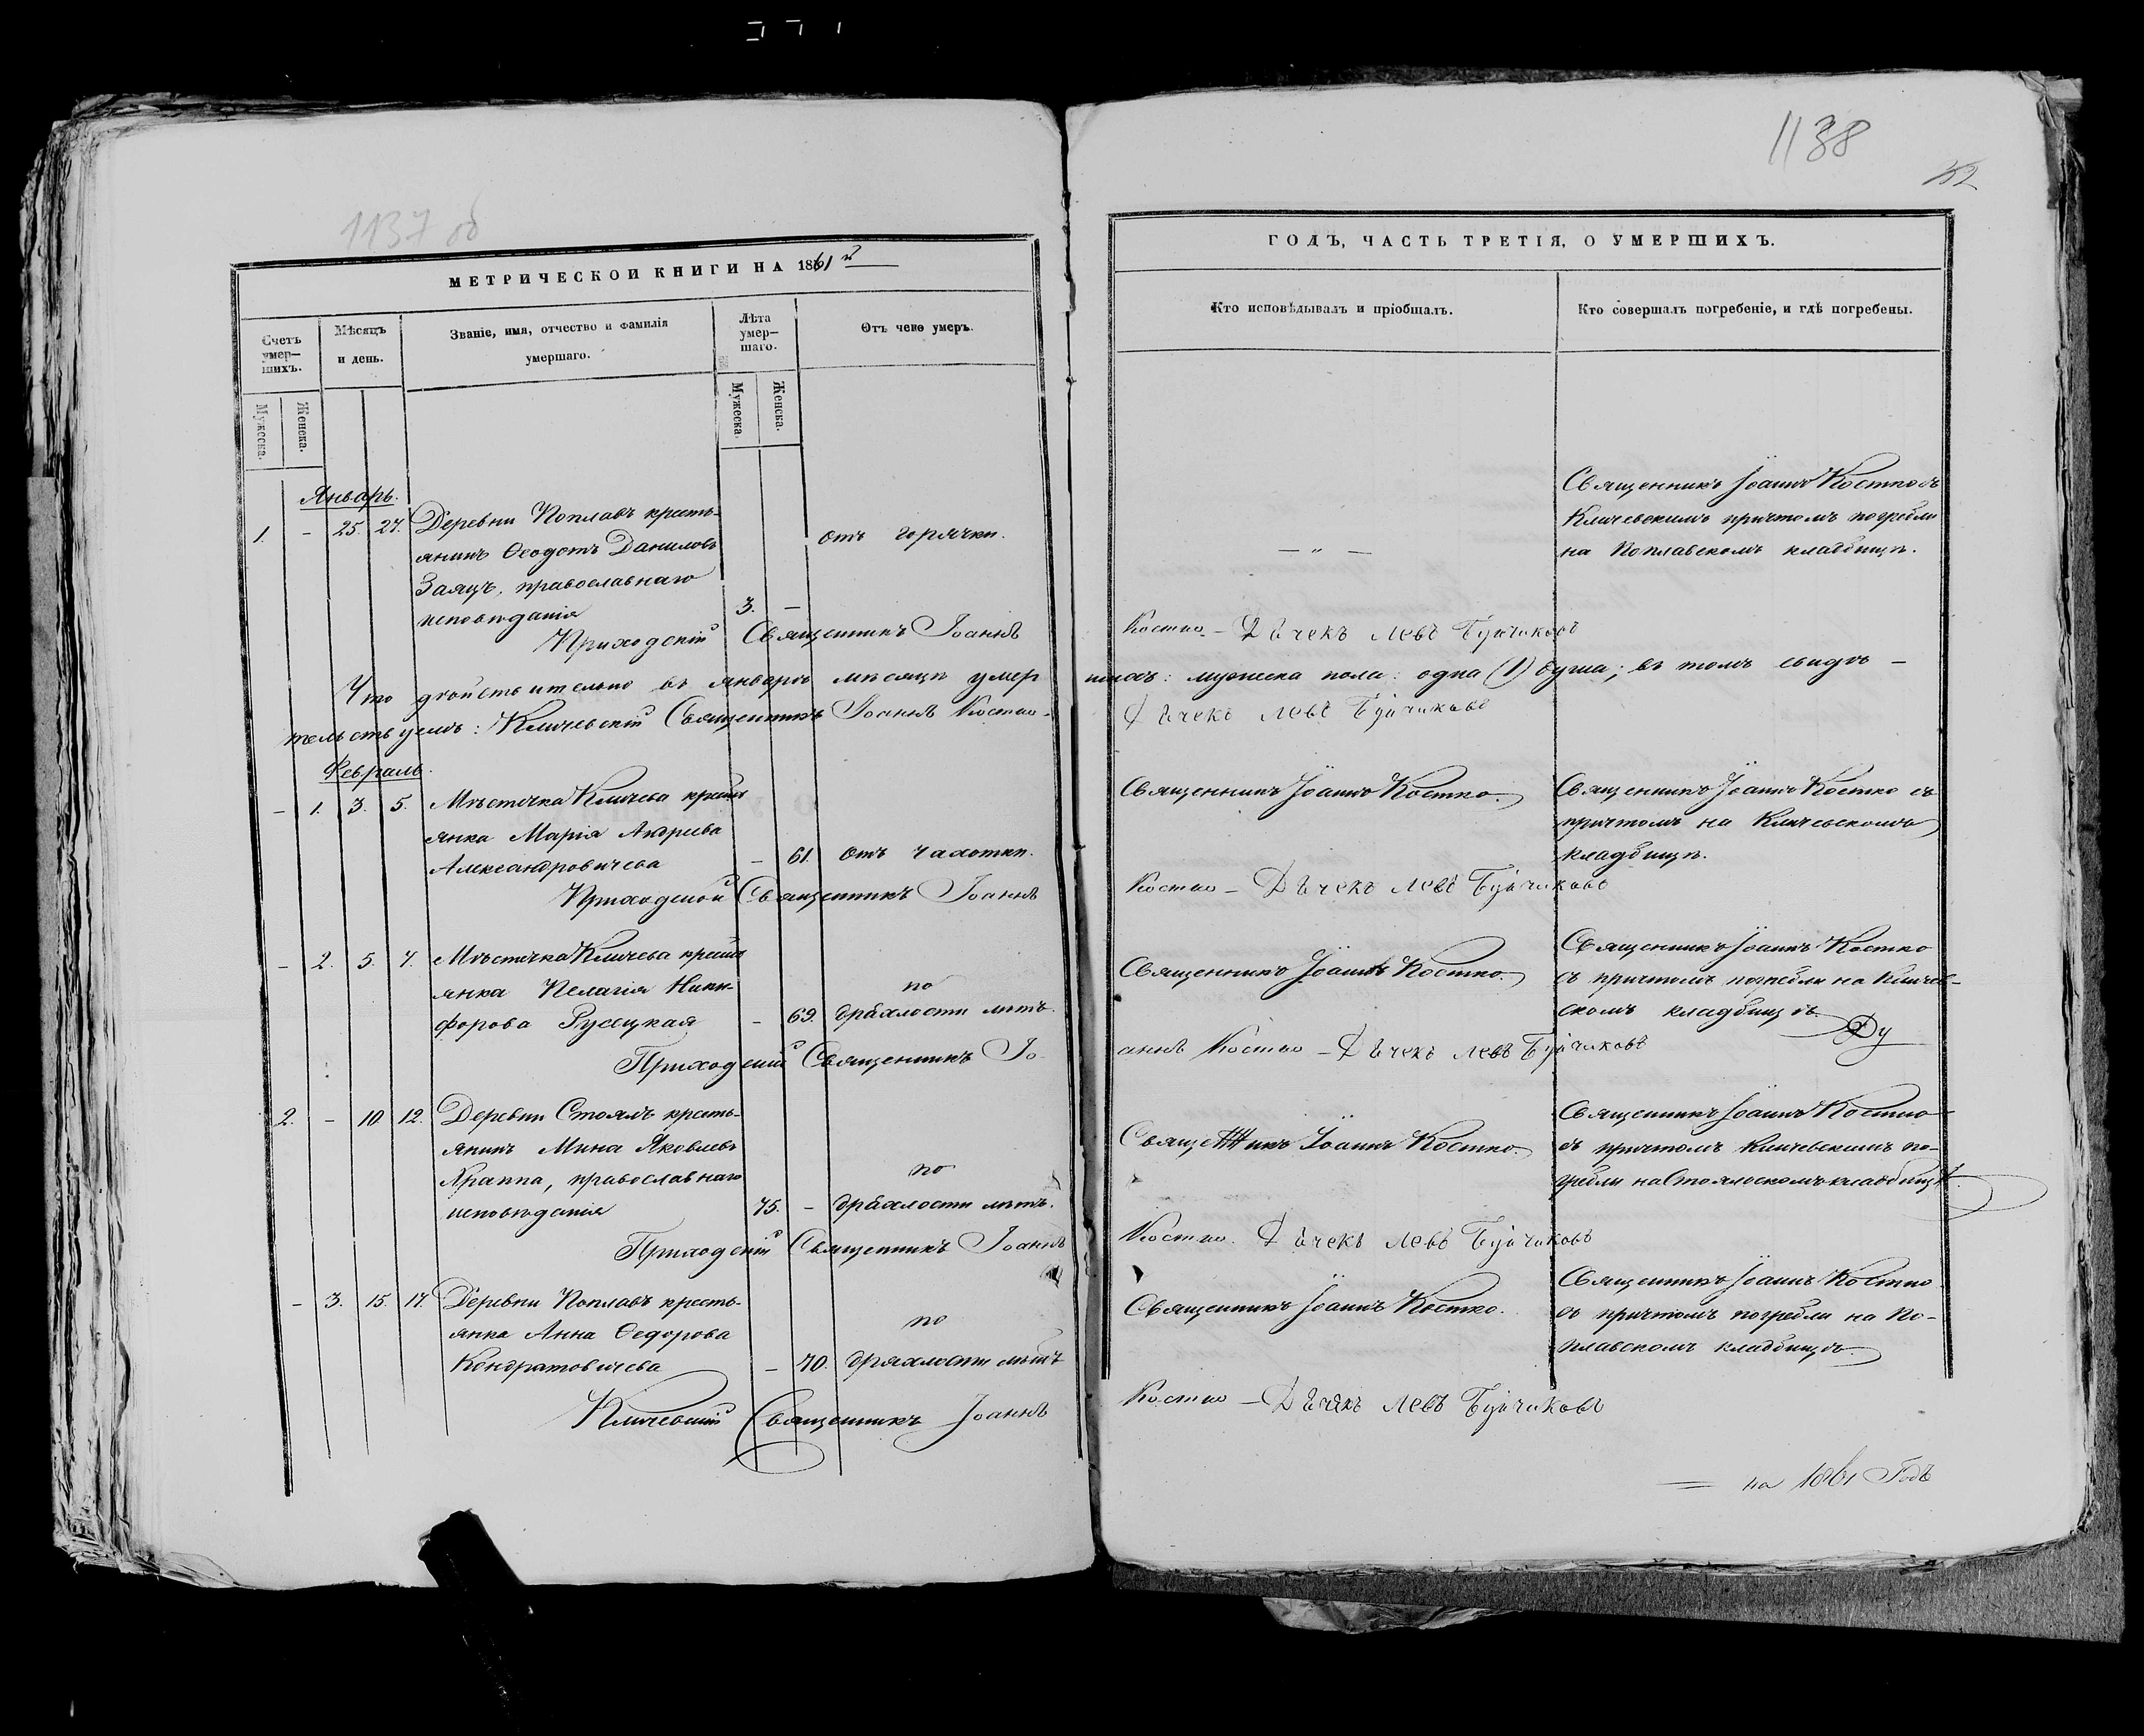 1137 об
МЕТРИЧЕСКОЙ КНИГИ НА 1861й
Счетъ умер-шихъ.
Мужеска.
Женска.
Мѣсяцъ и день.
Званіе, имя, отчество и фамилія умершаго.
Лѣта умер-шаго.
Мужеска.
Женска.
Отъ чего умеръ.
Январь.
1. - 25. 27. Деревни Поплавъ кресть-
янинъ Ѳеодотъ Даниловъ отъ горячки.
Заяцъ, православнаго
исповѣданія 3. -
Приходскій Священникъ Іоаннъ
Что дѣйствительно въ январѣ мѣсяцѣ умер
тельствуемъ: Кличевскій Священникъ Іоаннъ Костко
Февраль.
- 1. 3. 5. Мѣстечка Кличева кресть
янка Марія Андреева
Александровичева - 61. отъ чахотки.
Приходской Священникъ Іоаннъ
- 2. 5. 7. Мѣстечка Кличева кресть
янка Пелагія Ники- по
форова Русецкая - 69. дряхлости лѣтъ.
Приходскій Священникъ Іо-
2. - 10. 12. Деревни Стоялъ кресть-
янинъ Мина Яковлевъ
Храппа, православнаго по
исповѣданія 75. - дряхлости лѣтъ.
Приходскій Священникъ Іоаннъ
- 3. 15. 17. Деревни Поплавъ кресть-
янка Анна Ѳедорова по
Кондратовичева - 70. дряхлости лѣтъ
Кличевскій Священникъ Іоаннъ
1138
52
ГОДЪ, ЧАСТЬ ТРЕТІЯ, О УМЕРШИХЪ.
Кто исповѣдывалъ и пріобщалъ.
Кто совершалъ погребеніе, и гдѣ погребены.
Священникъ Іоаннъ Костко съ
Кличевскимъ причтомъ погребли
— „ — на Поплавскомъ кладбищѣ.
Костко - Дьчекъ Левъ Буйчиковъ
шихъ: мужеска пола: одна (1) душа; въ томъ свидѣ -
Дьчекъ Левъ Буйчиковъ
Священникъ Іоаннъ Костко. Священникъ Іоаннъ Костко съ
причтомъ на Кличевскомъ
кладбищѣ.
Костко - Дьчекъ Левъ Буйчиковъ
Священникъ Іоаннъ Костко
Священникъ Іоаннъ Костко. съ причтомъ погребли на Кличев-
скомъ кладбищѣ
аннъ Костко - Дьчекъ Левъ Буйчиковъ
Священникъ Іоаннъ Костко
Священникъ Іоаннъ Костко. съ причтомъ Кличевскимъ по-
гребли на Стоялоскомъ кладбищѣ.
Костко. Дьчекъ Левъ Буйчиковъ
Священникъ Іоаннъ Костко
Священникъ Іоаннъ Костко. съ причтомъ погребли на По-
плавскомъ кладбищѣ.
Костко - Дьчекъ Левъ Буйчиковъ
на 1861 Годъ